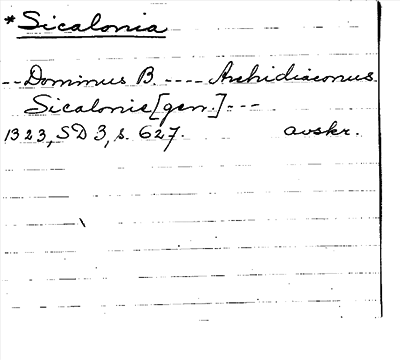 *Sicalonia
-- Dominus B. ---- Archidiaconus
Sicalonie [gen.] ---
1323, SD 3, s. 627. avskr.